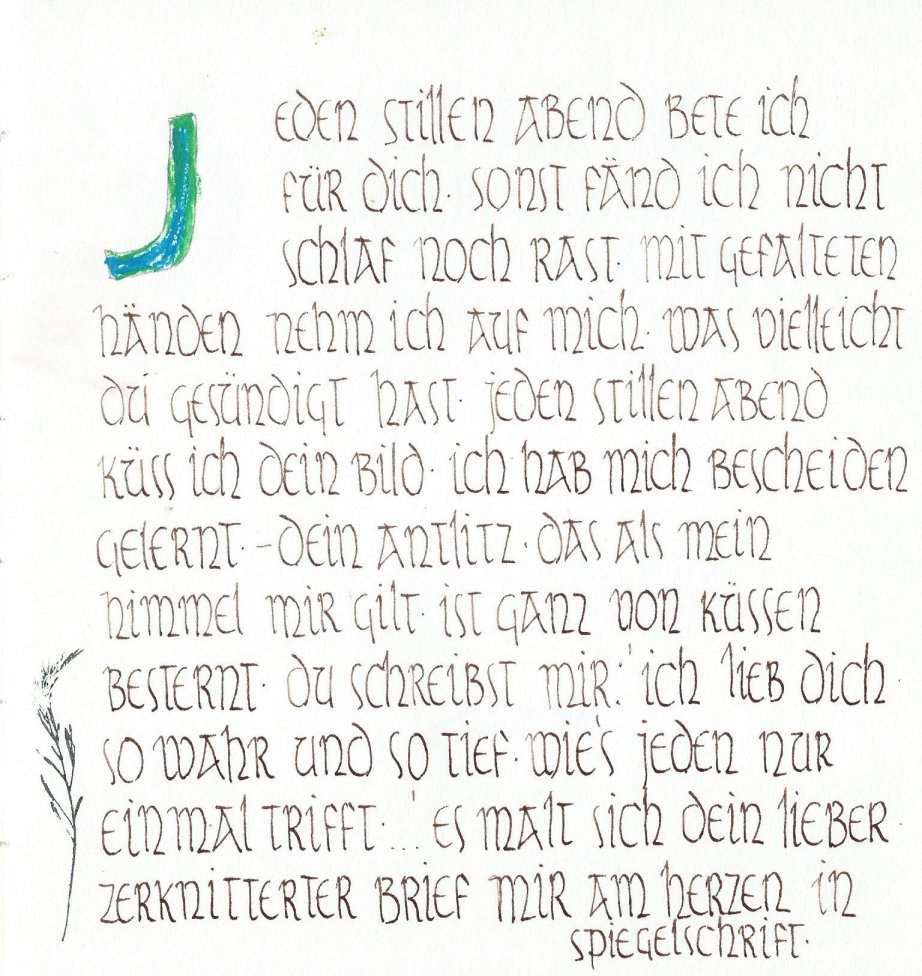 Jeden stillen Abend bete ich
für dich. sonst fänd ich nicht
schlaf noch Rast. mit gefalteten
händen nehm ich auf mich. was vielleicht
du gesündigt hast. jeden stillen Abend
küss ich dein Bild. ich hab mich bescheiden
gelernt. – dein Antlitz. das als mein
himmel mir gilt. ist ganz von küssen
besternt. du schreibst mir: 'ich lieb dich.
so wahr und so tief. wie's jeden nur
einmal trifft. ...' es malt sich dein lieber.
zerknitterter Brief mir am herzen in
spiegelschrift.